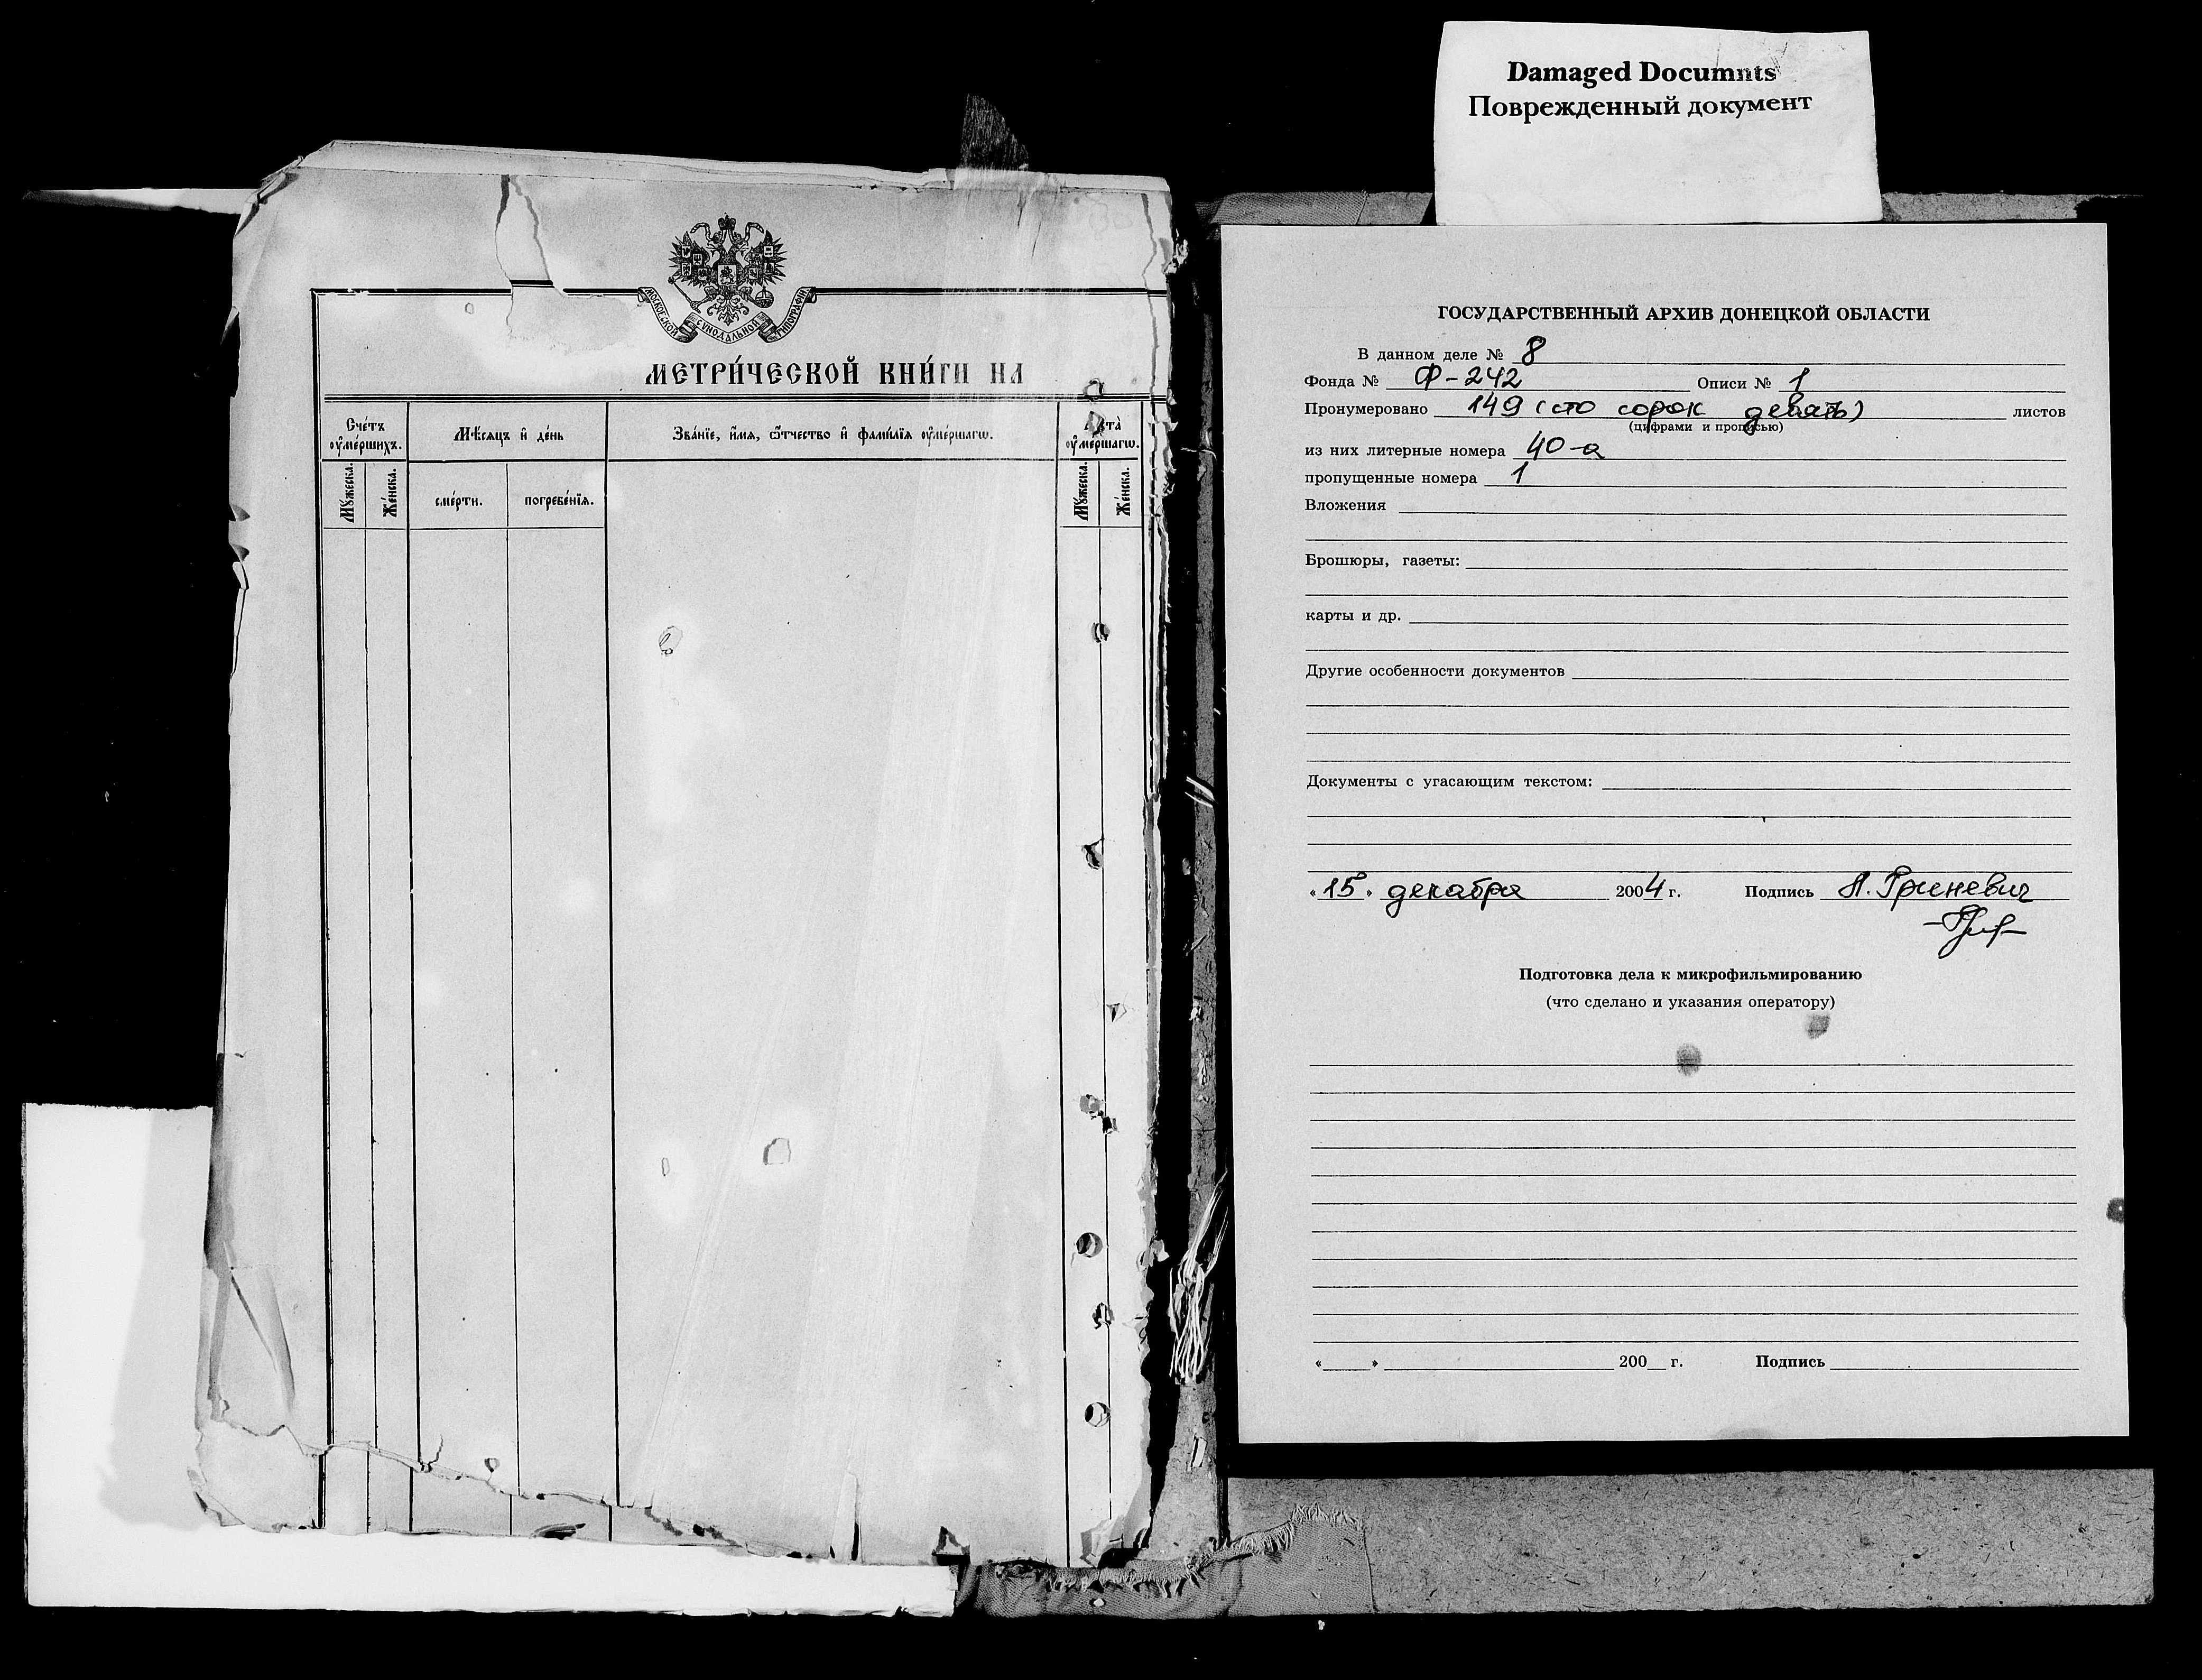 Damaged Documnts
Поврежденный документ
МОСКОВСКОЙ СѴНОДАЛЬНОЙ ТИПОГРАФІИ
МЕТРИ́ЧЕСКОЙ КНИ́ГИ НА
Сче́тъ оу҆ме́ршихъ.
Мѣ́сяцъ и҆ де́нь
Зва́нїе, и҆́мя, ѻ҆́тчество и҆ фами́лїя оу҆ме́ршагѡ.
оу҆ме́ршагѡ.
Мꙋ́жеска.
Же́нска.
сме́рти.
погребе́нїя.
Мꙋ́жеска.
Же́нска.
ГОСУДАРСТВЕННЫЙ АРХИВ ДОНЕЦКОЙ ОБЛАСТИ
В данном деле № 8
Фонда № Ф-242 Описи № 1
Пронумеровано 149 (сто сорок девять) листов
(цифрами и прописью)
из них литерные номера 40-а
пропущенные номера 1
Вложения
Брошюры, газеты:
карты и др.
Другие особенности документов
Документы с угасающим текстом:
«15» декабря 2004 г. Подпись Л. Гриневич
Подготовка дела к микрофильмированию
(что сделано и указания оператору)
«___» 200__ г. Подпись